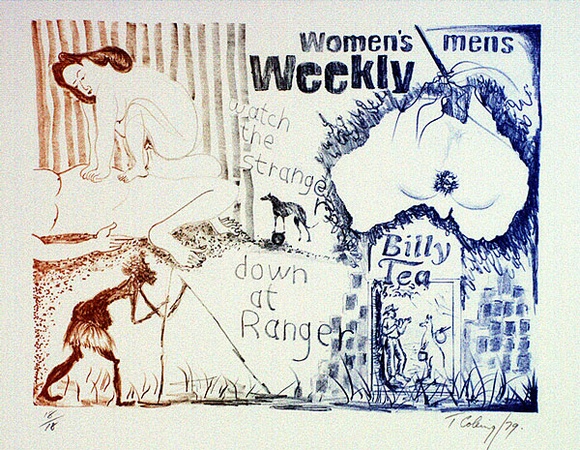 Women's mens
Weekly
Watch
the
stranger
down
at
Ranger
Billy
Tea
18/18